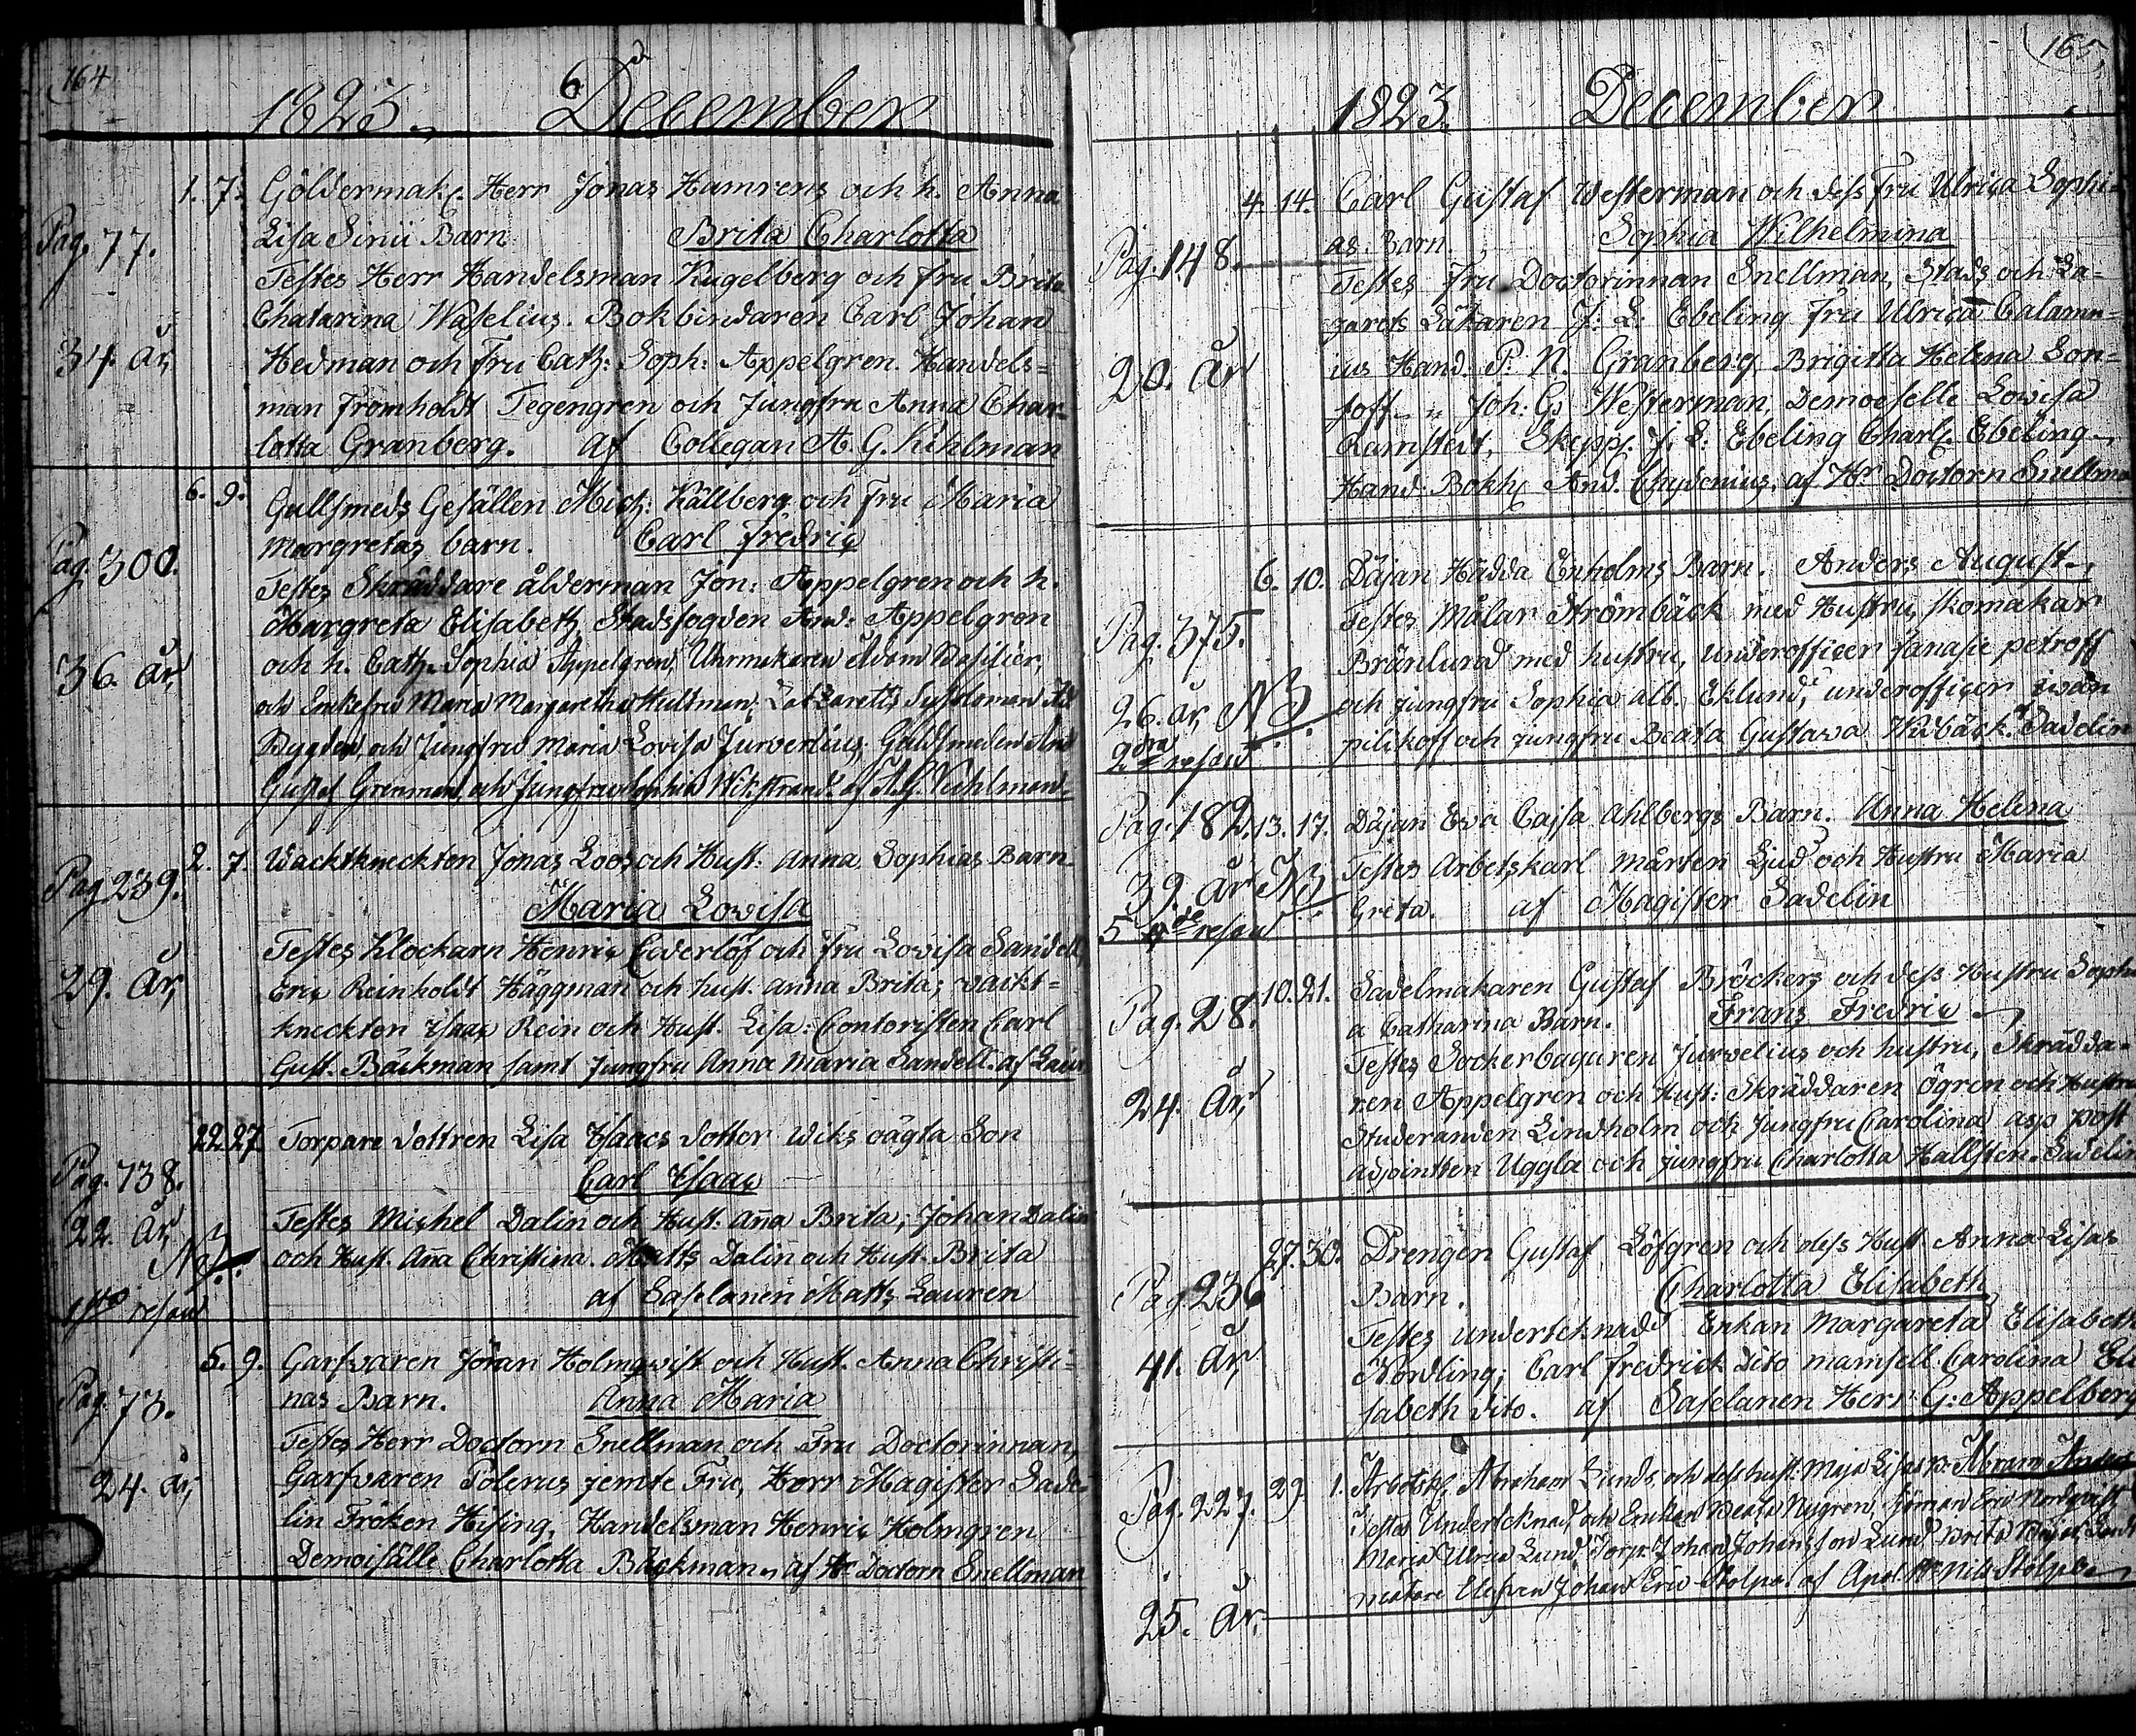 164
1823. December
1. 7. Göldermak. Herr Jonas Hamrens och h. Anna
Pag. 77. Lisa Sinii Barn. Brita Charlotta
Testes Herr Handelsman Kugelberg och fru Brita
Chatarina Waselius. Bokbindaren Carl Johan
34. år, Hedman och Fru Cath: Soph: Appelgren. Handels=
man Fromholdt Tegengren och Jungfru Anna Char-
lotta Granberg. af Collegan A. G. Kihlman
6. 9. Gullsmeds Gesällen Mich: Källberg och Fru Maria
Margretas barn. Carl Fredric
Pag. 300. Testes Skräddare ålderman Jon: Appelgren och h.
Margreta Elisabeth, Stadsfogden And: Appelgren
36. år, och h. Cath. Sophia Appelgren, Uhrmakaren Adam
och Enkefru Maria Margaretha Hultman; Lazaretts Sysloman
Bygden, och Jungfru Maria Lovisa Jurvelius; Guldsmeden And
Gustaf Grenman, och Jungfru Sophia Wikstrand. af A. G. Kihlman
2. 7. Wachtkneckten Jonas Loos och Hust: Anna Sophias Barn
Pag. 239. Maria Lovisa
Testes Klockarn Henric Cederlöf och Fru Lovisa Sandell,
29. år, Eric Reinholdt Häggman och hust. Anna Brita; vackt=
kneckten Isaac Rein och Hust. Lisa: Contoristen Carl
Gust. Bäckman samt Jungfru Anna Maria Sandell. af Laur
22. 27. Torpare dottren Lisa Isaacs dotter Wiks oägta Son
Pag. 738. Carl Isaac
22. år, Testes Michel Dalin och Hust. Aña Brita; Johan Dalin
NB. och Hust. Aña Christina. Matts Dalin och Hust. Brita
1sta resan af Saselanen Matts Lauren
5. 9. Garfvaren Jöran Holmqvist och Hust. Anna Christi=
Pag. 73. nas Barn. Anna Maria
Testes Herr Doctorn Snellman och Fru Doctorinnan,
24. år, Garfvaren Polerus jemte Fru, Herr Magister Sade-
lin Fröken Hising, Handelsman Henric Holmgren
Demoiselle Charlotta Bäckman, af Hr Doctorn Snellman
165
1823. December
4. 14. Carl Gustaf Westerman och dess Fru Ulrica Sophi-
Pag. 148. as Barn Sophia Wilhelmina
Testes Fru Doctorinnan Snellman, Stads och La-
zarets Läkaren J: L: Ebeling Fru Ulrica Calamn-
20. år ius Hand. P: N. Granberg Brigitta Helena Son-
Joh: G: Westerman, Demoeselle Lowisa
Ramstedt, Skepp. J. L: Ebeling Charl. Ebeling
Hand. Bokh. And. Chydenius, af Hr Doctorn Snellman
6. 10. Däjan Hedda Enholms Barn. Anders August.
Pag. 375. Testes Målar Strömbäck med Hustru, skomakar
Brünlund med hustru, underofficer fanasie petroff
26. år, NB. och jungfru Sophia alb. Eklund; underofficer iwan
2dra resan pilikoff och jungfru Beata Gustawa Widbäck. Sadelin
Pag. 182. 13. 17. Däjan Eva Cajsa Ahlbergs Barn. Anna Helena
39. år NB. Testes Arbetskarl Mårten Ljud och Hustru Maria
5 resan Greta. af Magister Sadelin
10. 21. Sadelmakaren Gustaf Bröckers och dess Hustru Sophi
Pag. 28. a Catharina Barn. Frans Fredric
Testes Sockerbagaren Jurvelius och hustru, Skrädda-
24. år, ren Appelgren och Hust: Skräddaren Ögren och Hustru
Studeranden Lindholm och Jungfru Carolina asp post
adjointen Uggla och jungfru Charlotta Hallsten. Sadelin
27. 30. Drengen Gustaf Löfgren och dess Hust Anna Lisas
Pag. 236 Barn. Charlotta Elisabeth
Testes underteknad Enkan Margareta Elisabeth
41. år, Nordling; Carl Fredrick dito mamsell Carolina Eli
sabeth dito. af Saselanen Herr G: Appelberg
29. 1. Arbetsk. Abraham Lunds och dess hust. Maja Lisas Abram Anders
Pag. 227. Testes Underteknad, och Enckan Beata Nygren, Sjöman Eric Nordqvist
Maria Ulrica Lund, Torp. Johan Johansson Lund Brita
mätare Elefven Johan Eric Stolpe. af Apol. Hr Nils Stolpe
25. år,